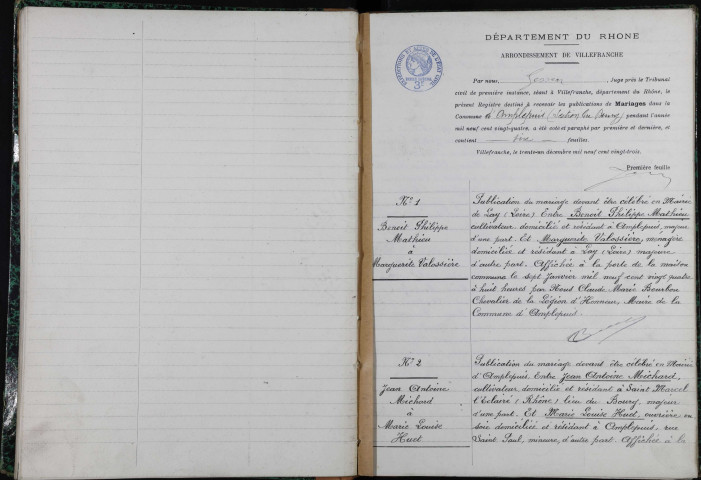 DÉPARTEMENT DU RHONE
ARRONDISSEMENT DE VILLEFRANCHE
Par nous, Juge près le Tribunal
civil de première instance, séant à Villefranche, département du Rhône, le
présent Registre destiné à recevoir les publications de Mariages dans la
Commune d'Amplepuis (Section du Bourg) pendant l'année
mil neuf cent vingt-quatre, a été coté et paraphé par première et dernière, et
contient feuilles.
Villefranche, le trente-un décembre mil neuf cent vingt-trois.
Première feuille
N° 1
Benoit Philippe
Mathieu
à
Marguerite Valossière
Publication du mariage devant être célébré en Mairie
de Lay (Loire). Entre Benoit Philippe Mathieu
cultivateur domicilié et résidant à Amplepuis, majeur
d'une part. Et Marguerite Valossière, ménagère
domiciliée et résidant à Lay (Loire) majeure
d'autre part. Affichée à la porte de la maison
commune le sept Janvier mil neuf cent vingt quatre
à huit heures par Nous Claude Marie Bourbon
Chevalier de la Légion d'Honneur, Maire de la
Commune d'Amplepuis.
N° 2
Jean Antoine
Michard
à
Marie Louise
Hud
Publication du mariage devant être célébré en Mairie
d'Amplepuis. Entre Jean Antoine Michard,
cultivateur domicilié et résidant à Saint Marcel
l'Eclairé (Rhône) lieu du Bourg, majeur
d'une part. Et Marie Louise Hud, ouvrière en
soie domiciliée et résidant à Amplepuis, rue
Saint Paul, mineure, d'autre part. Affichée à la